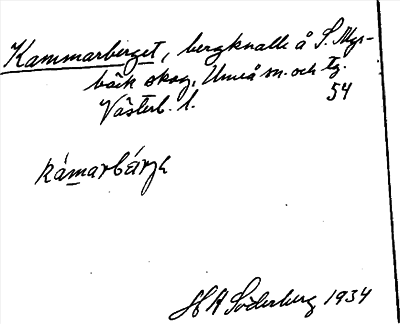 Kammarberget, bergknalle å S. Mys-
bäck skog, Umeå sn. och tg.
Västerb. l. 54
kámarbárjɛ
H A Söderberg 1934